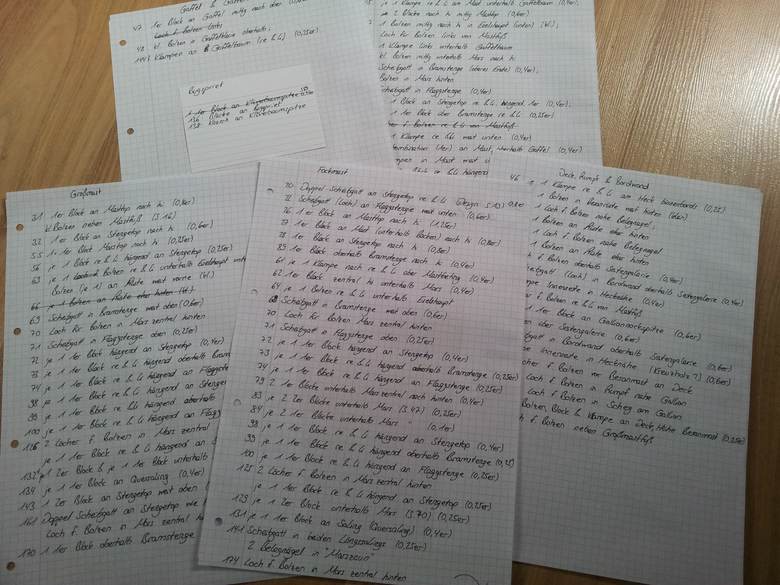 Gaffel & Gaffel
47 1er Block an Gaffel mittig nach oben
Loch f. Bolzen links
48 kl. Bolzen in Gaffelklau oberhalb;
144 Klampen an Gaffelbaum (re & li) (0,25er)
Bugspriet
136 Blöcke an Bugspriet
138 Block an Klüverbaumspitze
je 1 Klampe re & li am Mast unterhalb Gaffelbaum (0,4er)
je 2 Blöcke nach hi mittig Masttop (0,6er)
1 Bolzen mittig nach hi in Eselshaupt (hinten) (W.);
Loch für Bolzen links von Mastfuß
1 Klampe links unterhalb Gaffelbaum
kl. Bolzen mittig unterhalb Mars nach hi
Scheibgatt in Bramstenge (oberes Ende) (0,4er);
Bolzen in Mars hinten
Scheibgatt in Flaggstenge (0,4er)
1 Block an Stengetop re & li hängend 1er (0,4er);
1 Block über Bramstenge re & li (0,25er)
Loch f. Bolzen re & li von Mastfuß
1 Klampe re & li mast unten (0,4er)
an Mast unterhalb Gaffel (0,4er)
Großmast
31 1er Block an Masttop nach hi (0,8er)
kl. Bolzen neben Mastfuß (S.16)
32 1er Block an Stengetop nach hi (0,6er)
55 1er Block Masttop nach hi (0,25er)
56 je 1 Block re & li hängend an Stengetop (0,25er)
63 je 1 Bolzen re & li unterhalb Eselshaupt
Bolzen (je 1) an Püte weit vorne (W.)
66 je 1 Bolzen an Püte eher hinten (W.)
69 Scheibgatt in Bramstenge weit oben (0,6er)
70 Loch für Bolzen in Mars zentral hinten
71 Scheibgatt in Flaggstenge oben (0,25er)
72 je 1 er Block hängend an Stengetop (0,4er)
73 je 1 er Block re & li hängend oberhalb Bram
74 je 1 er Block re & li hängend an Flaggstenge
98 je 1 er Block re & li hängend an Stengetop
99 je 1 er Block re & li hängend oberhalb
100 je 1 er Block re & li hängend an Flagg
126 2 Löcher f. Bolzen in Mars zentral
je 1 er Block re & li hängend an S
132 je 1 2er Block & je 1 1er Block unterhalb
134 je 1 er Block an Quersaling (0,4er)
143 1 2er Block an Stengetop weit oben (0,
161 Doppel Scheibgatt an Stengetop
Loch f. Bolzen in Mars zentral hi
170 1 1er Block oberhalb Bramstenge
Fockmast
30 Doppel-Scheibgatt an Stengetop re & li (Design S.10) 0,8er
32 Scheibgatt (Loch) an Flaggstenge weit unten (0,6er)
76 1er Block an Masttop nach hi (1,25er)
77 1er Block an Mast (unterhalb Backen) nach hi (0,6er)
78 1er Block an Stengetop nach hi (0,8er)
85 1er Block oberhalb Bramstenge nach hi (0,25er)
61 je 1 Klampe nach re & li über Mastbeting (0,4er)
62 1er Block zentral hi unterhalb Mars (0,4er)
64 je 1 Bolzen re & li unterhalb Eselshaupt
68 Scheibgatt in Bramstenge weit oben (0,6er)
70 Loch für Bolzen Mars zentral hinten
71 Scheibgatt in Flaggstenge oben (0,25er)
72 je 1 er Block hängend an Stengetop (0,4er)
73 je 1 er Block re & li hängend oberhalb Bramstenge (0,25er)
74 je 1 er Block re & li hängend an Flaggstenge (0,25er)
79 2 1er Blöcke unterhalb Mars zentral nach hinten (0,4er)
83 je 2 2er Blöcke unterhalb Mars (S.47) (0,25er)
84 je 2 1er Blöcke unterhalb Mars " (0,1er)
98 je 1 er Block re & li hängend an Stengetop (0,4er)
99 je 1 er Block re & li hängend oberhalb Bramstenge (0,25)
100 je 1 er Block re & li hängend an Flaggstenge (0,25er)
125 2 Löcher f. Bolzen in Mars zentral hinten
je 1 er Block re & li hängend an Stengetop (0,25er)
129 je 1 2er Block unterhalb Mars (S.70) (0,25er)
131 je 1 1er Block an Saling (Quersaling) (0,4er)
141 Scheibgatt in beiden Längssalings (0,25er)
2 Belegnägel in "Marszaun"
174 Loch f. Bolzen in Mars zentral hinten
Deck, Rumpf & Bordwand
46 je 1 Klampe re & li am Heck binnenbords (0,25)
1 Bolzen in Heckreling weit hinten
1 Loch f. Bolzen nahe Belegnagel
1 Bolzen an Püte eher hi
1 Loch f. Bolzen nahe Belegnagel
1 Bolzen an Püte eher hi
f. Bolzen oberhalb Seitengalerie
Scheibgatt (Loch) in Bordwand oberhalb Seitengalerie (0,4er)
Klampe Innenseite in Heckreling (0,4er)
f. Bolzen re & li von Mastfuß
1 1er Block an Galionsknospitze (0,6er)
Bolzen über Seitengalerie (0,6er)
Scheibgatt in Bordwand oberhalb Seitengalerie (0,6er)
Innenseite in Heckreling (Kreuzholz?) (0,8er)
Löcher f. Bolzen vor Besanmast an Deck
Loch f. Bolzen in Rumpf nahe Galion
Loch f. Bolzen in Scheeg am Galion
Bolzen, Block & Klampe an Deck, Höhe Besanmast (0,25er)
f. Bolzen neben Großmastfuß